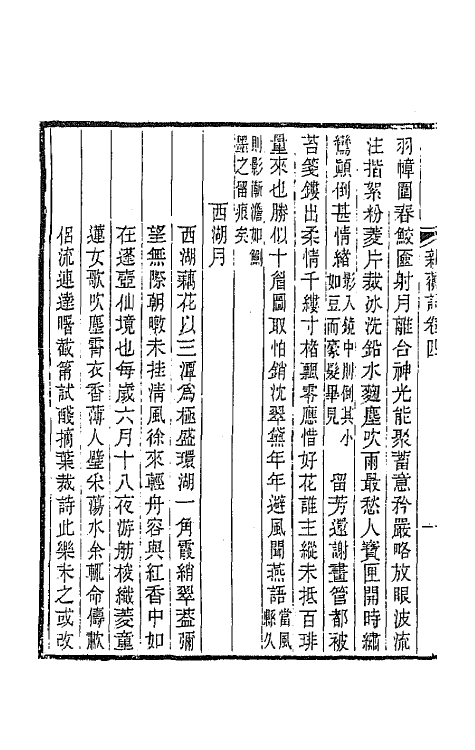 新蘅詞卷四
羽幛圍春鮫匳射月離合神光能聚蓄意矜嚴略放眼波流
注揩絮粉菱片裁冰洗鉛水麹塵吹雨最愁人寶匣開時繡
鸞顛倒甚情緒如豆而豪髮畢見影入鏡中則倒其小 留芳還謝畫管都被
苔箋鏤出柔情千縷寸格飄零應惜好花誰主縱未抵百琲
量來也勝似十眉圖取怕銷沈翠黛年年避風聞燕語當風縣久
則影漸澹如
墨之留痕矣
西湖月
西湖藕花以三潭爲極盛環湖一角霞綃翠葢彌
望無際朝暾未挂清風徐來輕舟容與紅香中如
在蓬壺仙境也每歲六月十八夜游舫梭織菱童
蓮女歌吹塵霄衣香薄人璧釆蕩水余輒命儔歗
侶流連達曙截筩試酸摘葉裁詩此樂未之或改